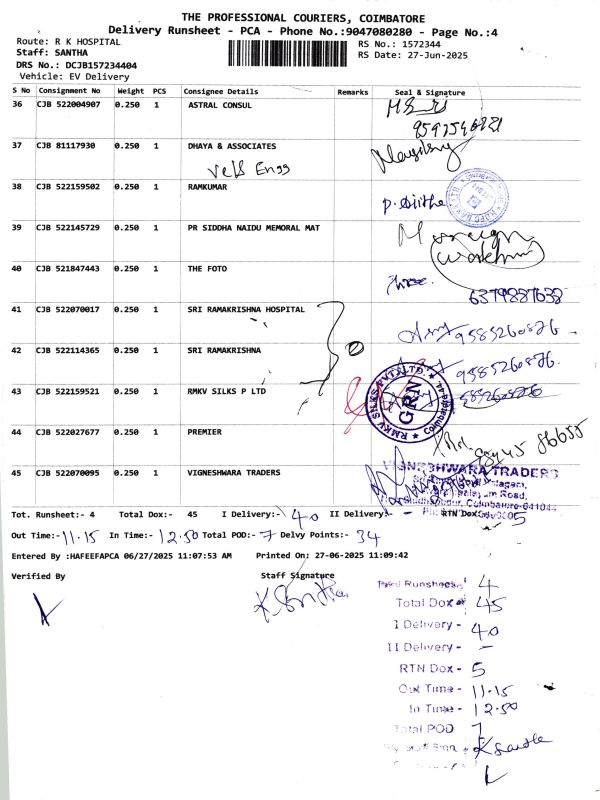 THE PROFESSIONAL COURIERS, COIMBATORE
Delivery Runsheet - PCA - Phone No.:9047080280 - Page No.:4
Route: R K HOSPITAL
Staff: SANTHA
DRS No.: DCJB157234404
Vehicle: EV Delivery
RS No.: 1572344
RS Date: 27-Jun-2025
S No Consignment No Weight PCS Consignee Details Remarks Seal & Signature
36 CJB 522004907 0.250 1 ASTRAL CONSUL
37 CJB 81117930 0.250 1 DHAYA & ASSOCIATES
Vels Engg
38 CJB 522159502 0.250 1 RAMKUMAR
39 CJB 522145729 0.250 1 PR SIDDHA NAIDU MEMORAL MAT
40 CJB 521847443 0.250 1 THE FOTO
6379887638
41 CJB 522070017 0.250 1 SRI RAMAKRISHNA HOSPITAL
9585260876
42 CJB 522114365 0.250 1 SRI RAMAKRISHNA
9585260876
43 CJB 522159521 0.250 1 RMKV SILKS P LTD
RMKV SILKS PVT. LTD. GRN Coimbatore-44
44 CJB 522027677 0.250 1 PREMIER
45 CJB 522070095 0.250 1 VIGNESHWARA TRADERS
VIGNESHWARA TRADERS
Road,
Coimbatore-641044
Tot. Runsheet:- 4 Total Dox:- 45 I Delivery:- 40 II Delivery:- - RTN Dox:- 5
Out Time:- 11.15 In Time:- 12.50 Total POD:- 7 Delvy Points:- 34
Entered By :HAFEEFAPCA 06/27/2025 11:07:53 AM Printed On: 27-06-2025 11:09:42
Verified By Staff Signature
Runsheets 4
Total Dox 45
I Delivery - 40
II Delivery - -
RTN Dox - 5
Out Time - 11.15
In Time - 12.50
Total POD 7
K Santha